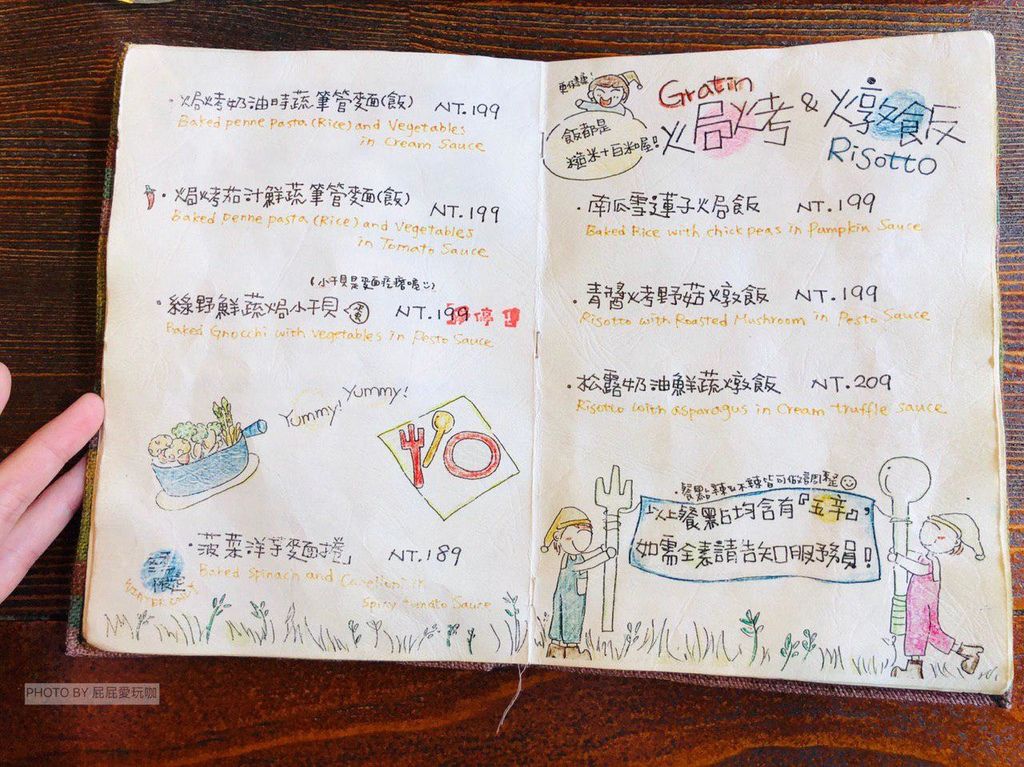 ・焗烤奶油時蔬筆管麵(飯) NT.199
Baked penne pasta (Rice) and Vegetables
in Cream Sauce
・焗烤茄汁鮮蔬筆管麵(飯) NT.199
Baked penne pasta (Rice) and Vegetables
in Tomato Sauce
(小干貝是麵疙瘩唷:)
・綠野鮮蔬焗小干貝 NT.199 暫停!!
Baked Gnocchi with vegetables in Pesto Sauce
Yummy! Yummy!
・菠菜洋芋麵捲 NT.189
Baked Spinach and
Spicy tomato Sauce
限定
WINTER ONLY
飯都是
糙米+白米喔!
Gratin
焗烤 & 燉飯
Risotto
・南瓜雪蓮子焗飯 NT.199
Baked Rice with chick peas in Pumpkin Sauce
・青醬烤野菇燉飯 NT.199
Risotto with Roasted Mushroom in Pesto Sauce
・松露奶油鮮蔬燉飯 NT.209
Risotto with asparagus in Cream truffle sauce
・餐點辣&不辣皆可做調整
以上餐點均含有『五辛』,
如需全素請告知服務員!
PHOTO BY 屁屁愛玩咖